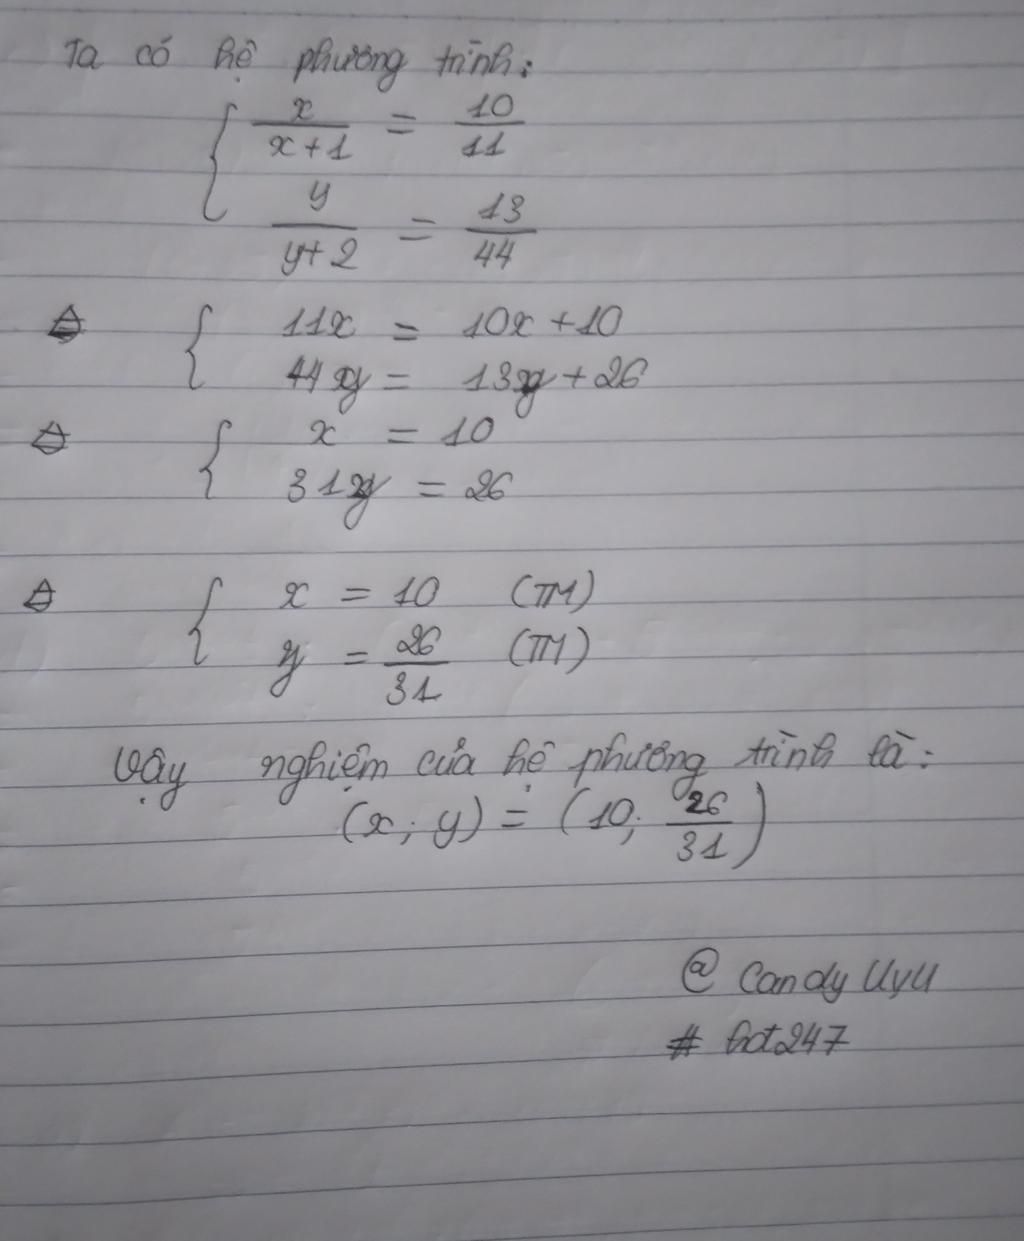 Ta có hệ phương trình:
{ x/(x+1) = 10/11
y/(y+2) = 13/44
⇔ { 11x = 10x + 10
44y = 13y + 26
⇔ { x = 10
31y = 26
⇔ { x = 10 (TM)
y = 26/31 (TM)
Vậy nghiệm của hệ phương trình là:
(x; y) = (10; 26/31)
@ Candy UyU
# hot247